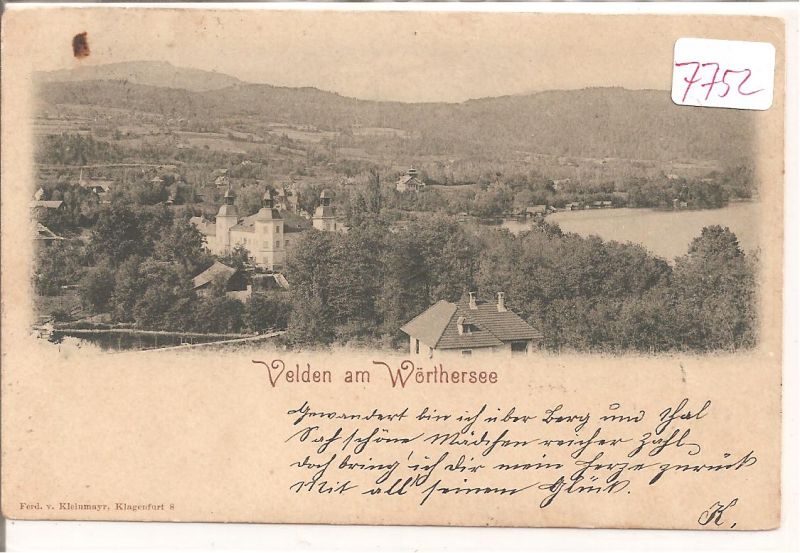 7752
Velden am Wörthersee
Gewandert bin ich über Berg und Thal
Sah schöne Mädchen reicher Zahl
doch bring' ich dir mein Herze zurück
Mit all seinem Glück.
K.
Ferd. v. Kleinmayr, Klagenfurt 8